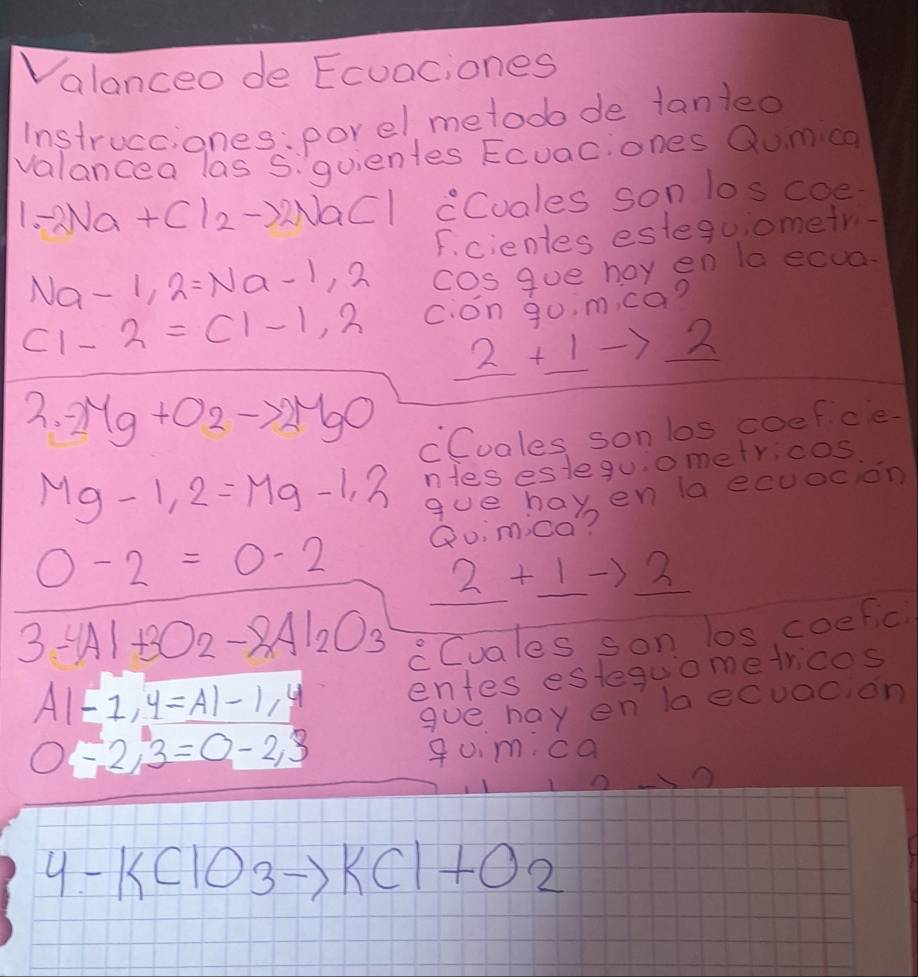 Valanceo de Ecuaciones
Instrucciones: por el metodo de tanteo
valancea las siguientes Ecuaciones Quimica
1.-2Na + Cl2 -> 2NaCl
¿Cuales son los coe-
ficientes estequiometri-
cos que hay en la ecua-
ción quimica?
Na - 1, 2 = Na - 1, 2
Cl - 2 = Cl - 1, 2
2 + 1 -> 2
2.-2Mg + O2 -> 2MgO
¿Cuales son los coeficie-
ntes estequiometricos
que hay en la ecuación
Quimica?
Mg - 1, 2 = Mg - 1, 2
O - 2 = O - 2
2 + 1 -> 2
3.-4Al + 3O2 - 2Al2O3
¿Cuales son los coefici
entes estequiometricos
que hay en la ecuación
quimica
Al - 1, 4 = Al - 1, 4
O - 2, 3 = O - 2, 3
4.- KClO3 -> KCl + O2